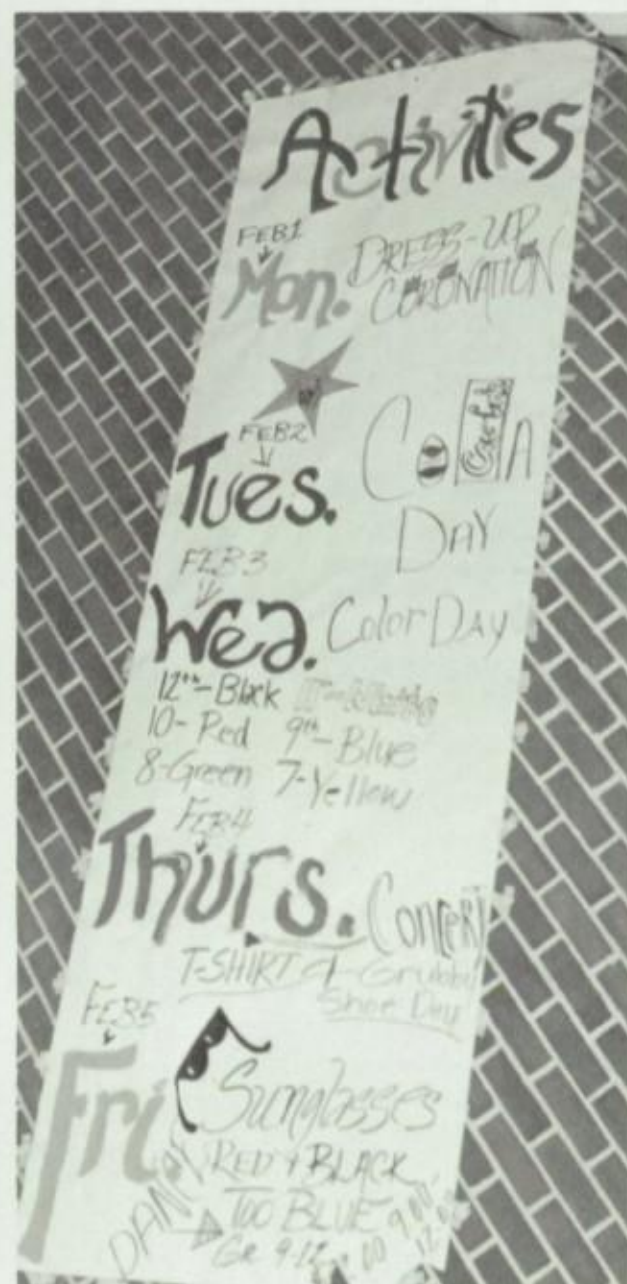 Activities
FEB1
Mon. DRESS-UP
CORONATION
FEB2
Tues. Cola
DAY
FEB 3
Wed. Color DAY
12th-Black 11-White
10-Red 9th-Blue
8-Green 7-Yellow
FEB4
Thurs. Concert
T-SHIRT & Grubby
Shoe Day
FEB5
Fri. Sunglasses
RED & BLACK
DANCE TOO BLUE
Gr 9-12